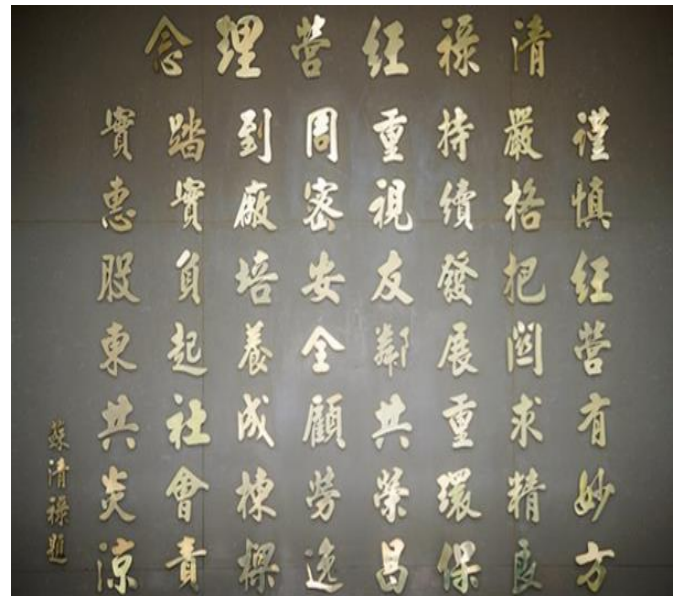 清祿經營理念
謹慎經營有妙方
嚴格把關求精良
持續發展重環保
重視友鄰共榮昌
周密安全顧勞逸
到廠培養成棟樑
踏實負起社會責
實惠股東共炎涼
蘇清祿題